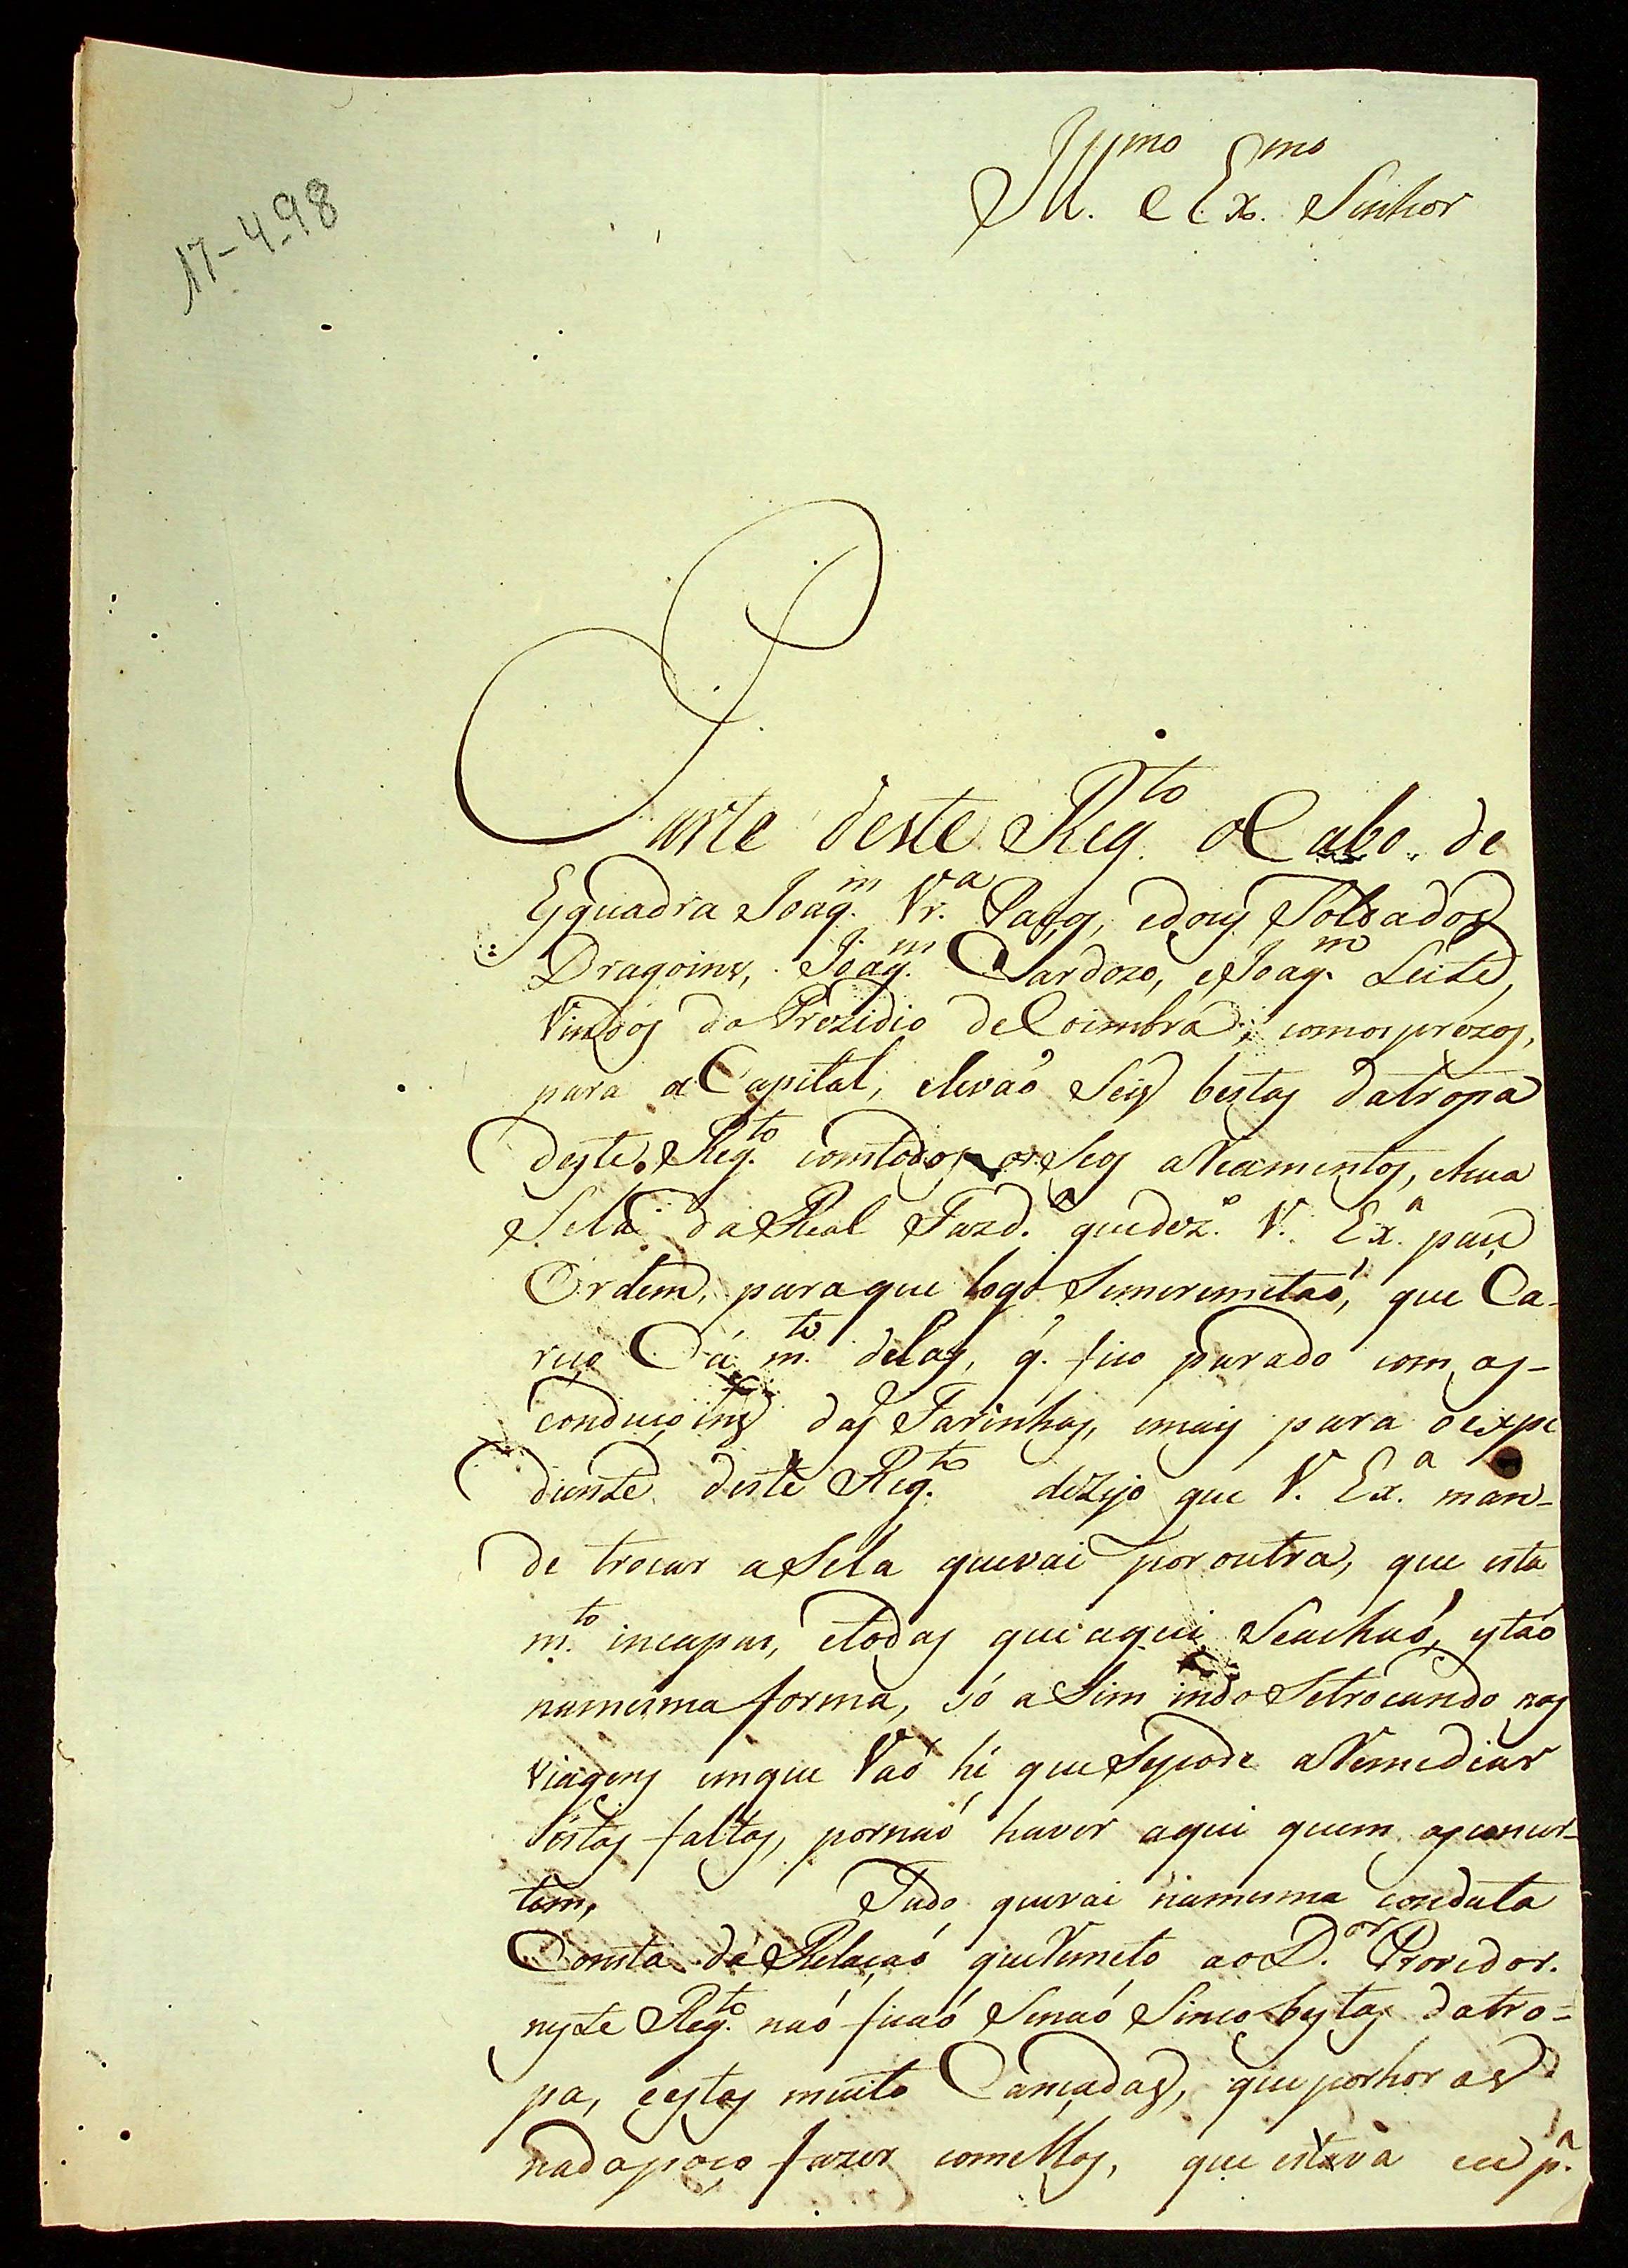 17-4-98
Ill.mo e Ex.mo Senhor
Parte deste Reg.to o Cabo de
Esquadra Joaq.m Vr.a Paçoz, e dous Soldados
Dragoins, Joaq.m Cardozo, e Joaq.m Leite,
Vindos do Prezidio de Coimbra, com os prezos,
para a Capital, e levaó Seis bestas da tropa
deste Reg.to com todos os Seos aReamentos, e hua
Sela da Real Fazd.a que dez.o V. Ex.a pase
Ordem, para que logo Se me remetaó, que Ca-
reço Cá m.to delas, q. fico parado com as-
conduçoins das Farinhas, e mais para o expe
diente deste Reg.to dezejo que V. Ex.a man-
de trocar a Sela que vai por outra, que esta
m.to incapas, e todas que aqui Se achaó, estaó
na mesma forma, só a Sim indo Se trocando nas
viagens em que Vaó hé que Se pode aRemediar
estas faltas, por naó haver aqui quem as concer-
tem, Tudo que vai na mesma conduta
Consta da Relaçaó que Remeto ao D.or Provedor.
neste Reg.to naó ficaó Senaó Sinco bestas da tro-
pa, e estas muito Cançadas, que por horas
nada poço fazer com ellas, que estava eu p.a